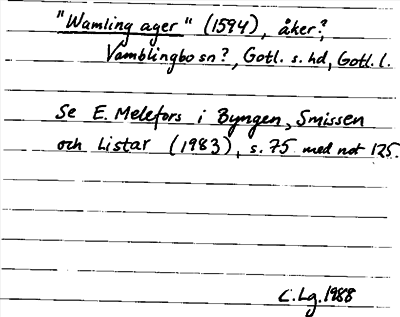 "Wamling ager" (1594), åker?,
Vamblingbo sn?, Gotl. s. hd, Gotl. l.
Se E. Melefors i Byngen, Smissen
och Listar (1983), s. 75 med not 125.
C. Lg. 1988